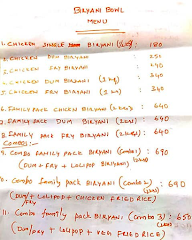 BIRYANI BOWL
MENU
1. CHICKEN SINGLE BIRYANI : 180
2. CHICKEN DUM BIRYANI : 250
3. CHICKEN FRY BIRYANI : 240
4. CHICKEN DUM BIRYANI (1 kg) : 340
5. CHICKEN FRY BIRYANI (1 kg) : 340
6. FAMILY PACK CHICKEN BIRYANI : 640
7. FAMILY PACK DUM BIRYANI : 640
8. FAMILY PACK FRY BIRYANI : 640
COMBOS:-
9. COMBO FAMILY PACK BIRYANI (combo 1) : 690
(DUM/FRY + LOLIPOP BIRYANI)
10. Combo family pack BIRYANI (combo 2) : 690
(DUM/ + LOLIPOP + CHICKEN FRIED RICE)
11. Combo family pack BIRYANI (combo 3) : 650
(DUM/FRY + LOLIPOP + VEG FRIED RICE)